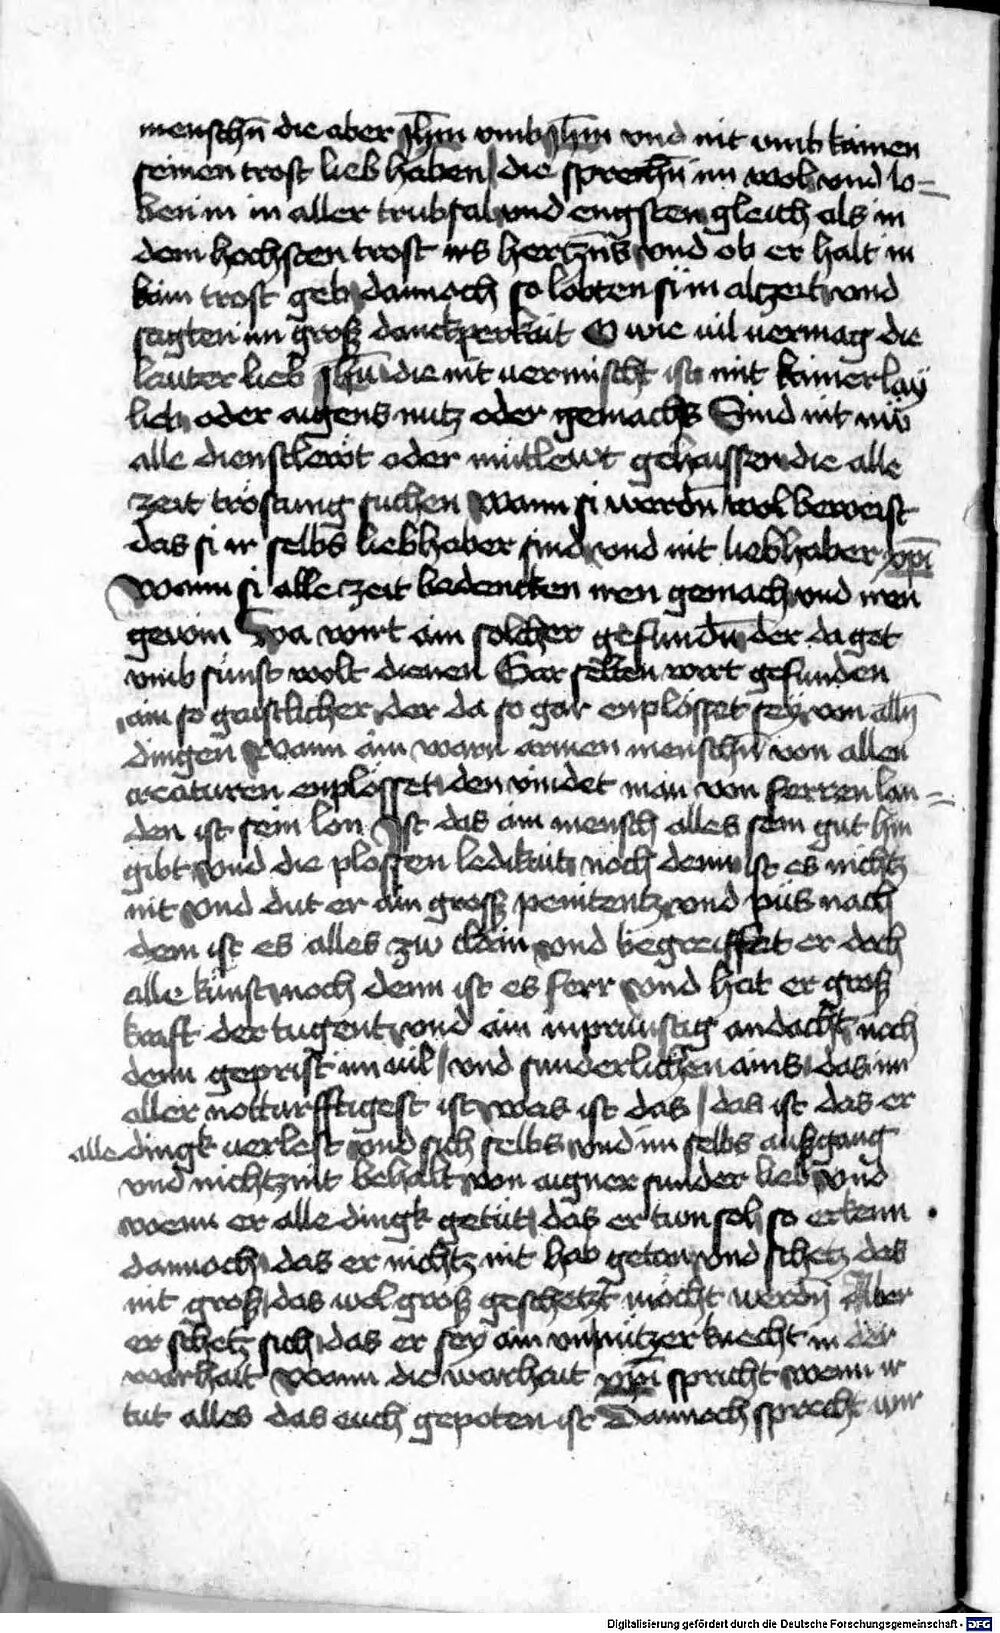 menschn̄ die aber Jhm̄ vmb Jhm̄ vnd nit vmb kainen
seinen trost lieb haben / die sprechn̄ im wol vnd lo=
ben in in aller trubsal vnd engsten gleich als in
dem hochsten trost irs hertzn̄s vnd ob er halt in
kain trost geb dannoch so lobten si in alzeit vnd
sagten im groß danckperkait O wie vil vermag die
lauter lieb Jhū die nit vermischt ist mit kainerlay
lieb oder aigens nutz oder gemachs Sind nit nw̄
alle dienstlewt oder mütlewt gehaissen die alle
zeit tröstung suchen Wann si werdn̄ wol beweist
das si ir selbs liebhaber sind vnd nit liebhaber xp̄i
Wann si alle zeit bedencken iren gemach vnd iren
gewin Wa wirt ain solcher gefundn̄ der da got
vmb sunst wolt dienen Gar selten wirt gefunden
ain so gaistlicher der da so gar enplösset sey von alln̄
dingen Wann ain warn armen menschn̄ von allen
creaturen enplösset den vindet man von ferren lan=
den ist sein lon Ist das ain mensch alles sein gut hin
gibt vnd die plossen ledikait noch denn ist es nichtz
nit Vnd dut er ain groß penitentz vnd püs nach
dem ist es alles zw clain vnd begreiffet er doch
alle kunst noch denn ist es ferr vnd hat er groß
kraft der tugent vnd ain inprünstig andacht noch
denn geprist im vil / vnd sunderlichen ains das im
aller notturfftigest ist was ist das / das ist das er
alle dingk verlest vnd sich selbs vnd im selbs außgang
vnd nichtz nit behalt von aigner sunder lieb vnd
wenn er alle dingk getut das er tun sol so erkenn
dannoch das er nichtz nit hab getan vnd schetz das
nit groß das wol groß geschetzt möcht werdn̄ Aber
er schetz sich das er sey ain vnnützer knecht in der
warhait Wann die warhait xp̄ūs spricht wenn ir
tut alles das euch gepoten ist Dannoch sprecht wir